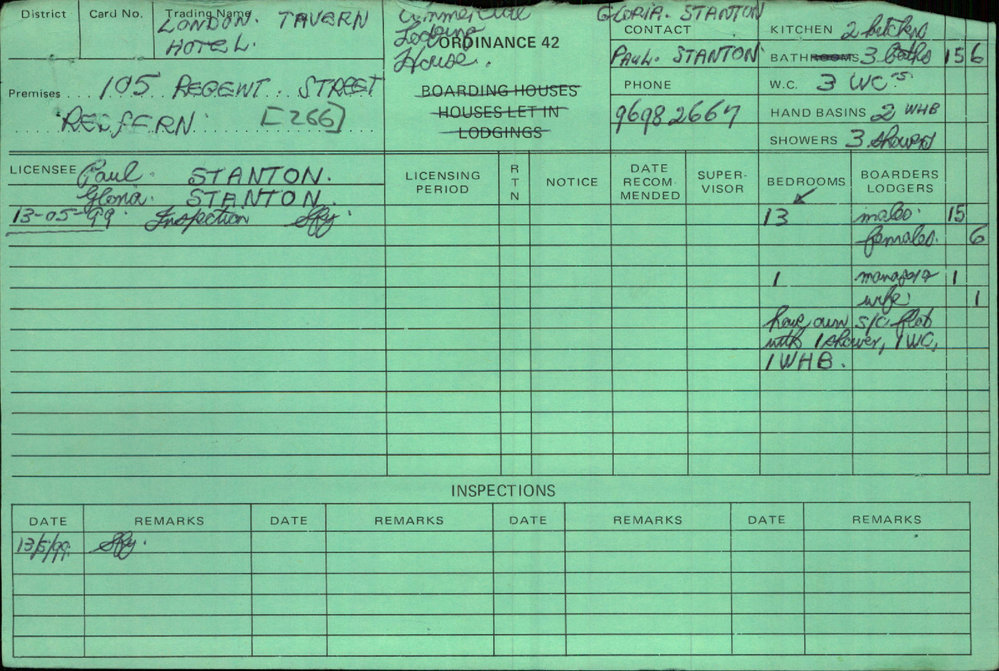 District Card No. Trading Name LONDON. TAVERN
HOTEL.
Premises 105 REGENT STREET
REDFERN [266]
Commercial
Lodging
House.
ORDINANCE 42
BOARDING HOUSES
HOUSES LET IN
LODGINGS
GLORIA. STANTON
CONTACT
PAUL. STANTON
PHONE
96982667
KITCHEN 2
BATHROOMS 3 Baths 15 6
W.C. 3 WCs
HAND BASINS 2 WHB
SHOWERS 3 showers
LICENSEE Paul. STANTON.
Gloria. STANTON.
13-05-99. Inspection Sfy.
LICENSING PERIOD
RTN
NOTICE
DATE RECOM-MENDED
SUPER-VISOR
BEDROOMS
BOARDERS LODGERS
13 males. 15
females. 6
1 manager 1
wife. 1
have own s/c flat
with 1 shower, 1 WC,
1 WHB.
INSPECTIONS
DATE REMARKS DATE REMARKS DATE REMARKS DATE REMARKS
13/5/99. Sfy.